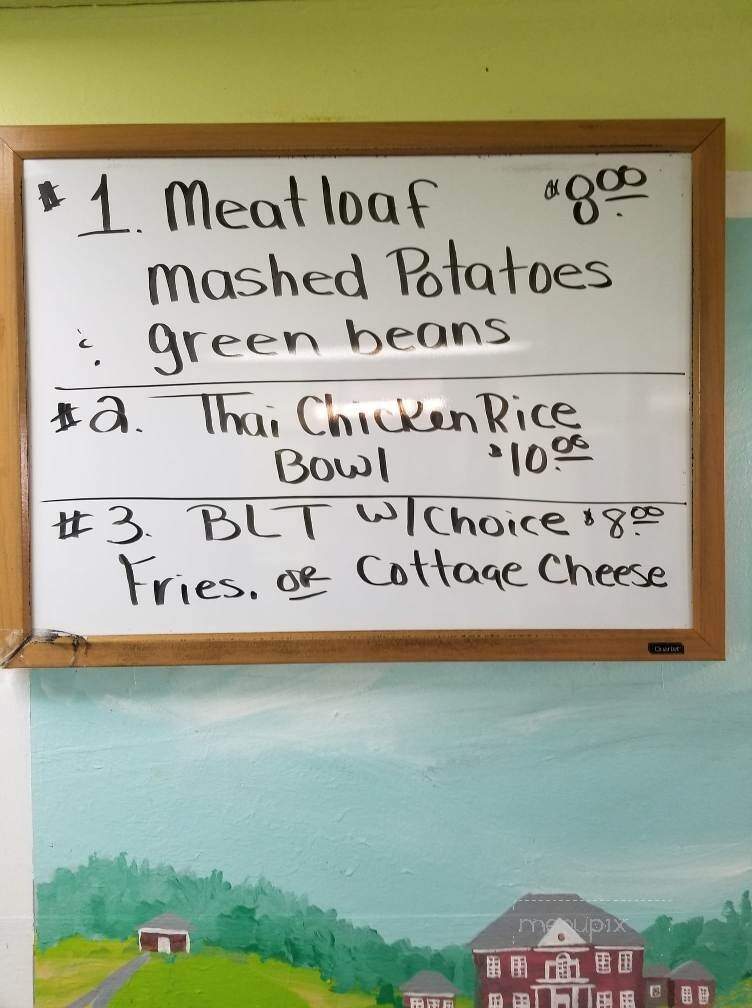 # 1. Meatloaf $8.00
Mashed Potatoes
& green beans
#2. Thai Chicken Rice
Bowl $10.00
#3. BLT W/Choice $8.00
Fries. or Cottage Cheese
Quartet
menupix